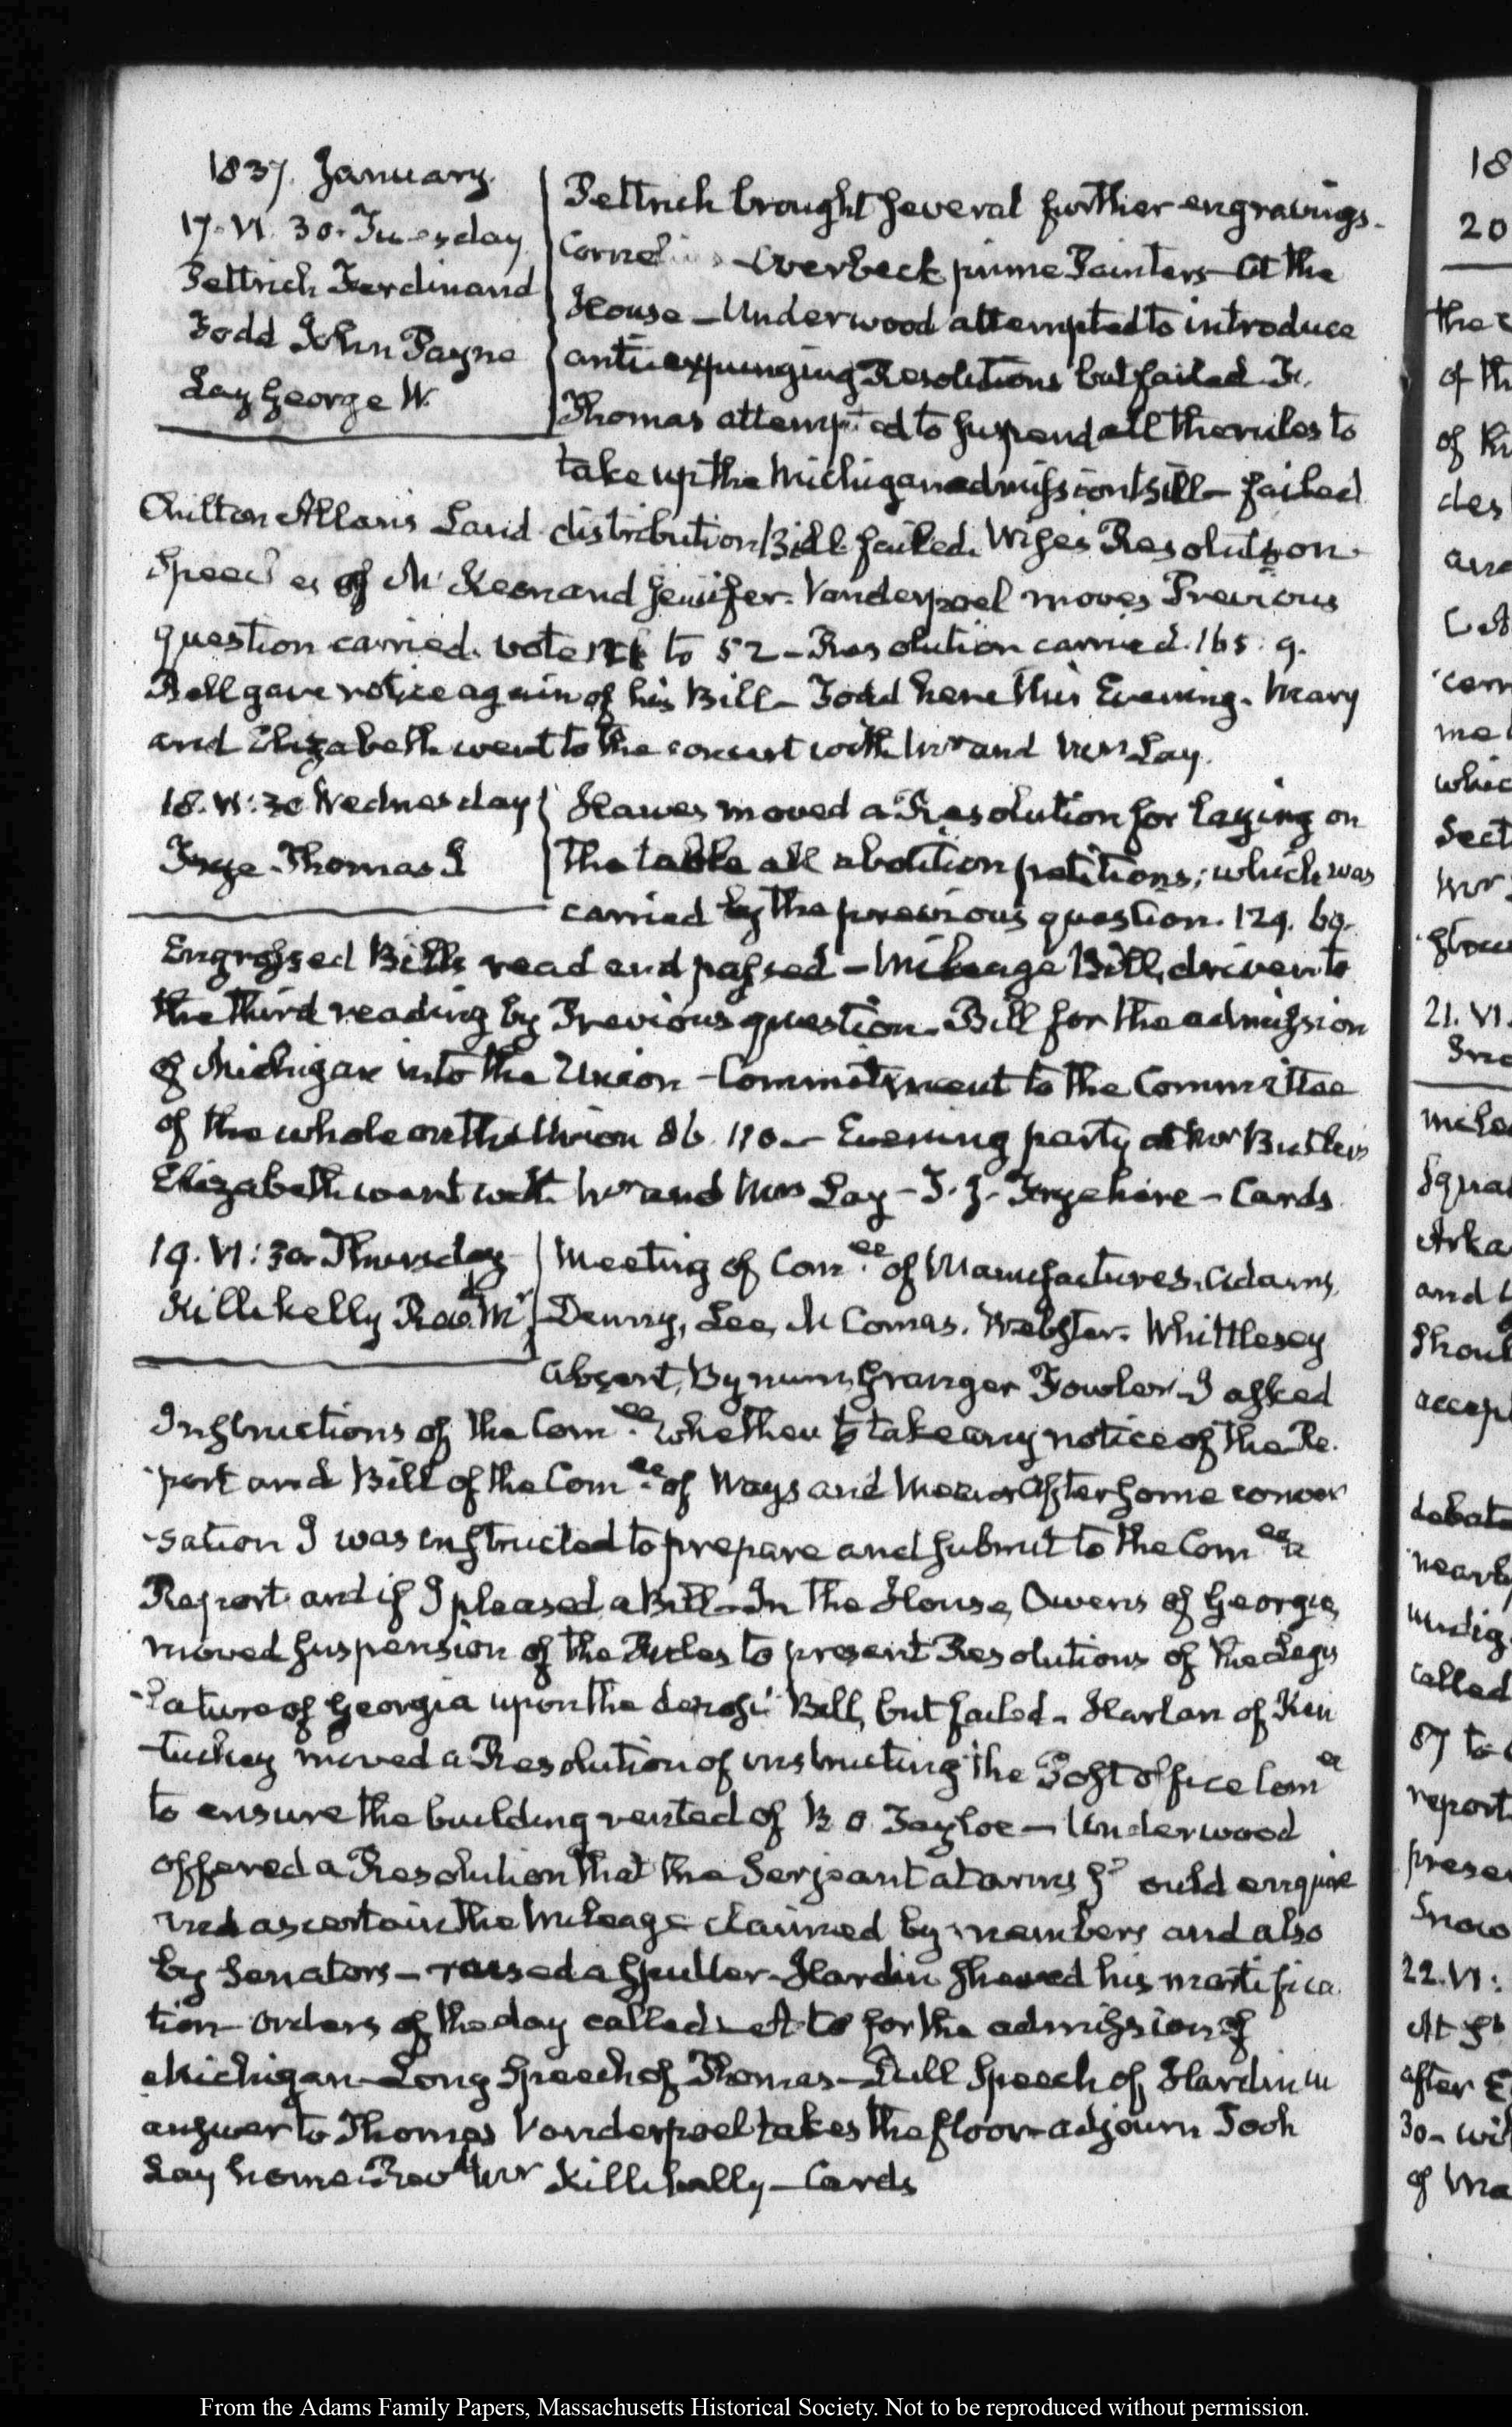 1837. January.
17. VI. 30. Tuesday
Pettrich Ferdinand
Todd John Payne
Lay George W.
Pettrich brought several further engravings.
Overbeck prime Painters At the
House – Underwood attempted to introduce
anti expunging Resolutions but failed Fr.
Thomas attempted to suspend all the rules to
take up the Michigan admission Bill – failed
Chilton Allan's Land distribution Bill failed. Wise's Resolution
Speeches of McKeon and Jenifer. Vanderpoel moves Previous
question carried. vote to 52 – Resolution carried. 165. 9.
Bell gave notice again of his Bill – Todd here this Evening. Mary
and Elizabeth went to the concert with Mr and Mrs Lay.
18. VI: 30 Wednesday
Frye Thomas J
Hawes moved a Resolution for laying on
the table all abolition petitions; which was
carried by the previous question. 129. 69.
Engrossed Bills read and passed – Mileage Bill, driven to
the third reading by Previous question. Bill for the admission
of Michigan into the Union – Commitment to the Committee
of the whole on the Union 86. 110 – Evening party at Mr Butler's
Elizabeth went with Mr and Mrs Lay – T. J. Frye here – Cards.
19. VI: 30 Thursday
Killikelly Revd Mr
Meeting of Comee of Manufactures. Adams,
Denny, Lee, McComas. Webster. Whittlesey
absent, Bynum, Granger Fowler – I asked
Instructions of the Comee whether to take any notice of the Re-
port and Bill of the Comee of Ways and Means After some conver
-sation I was instructed to prepare and submit to the Comee a
Report and if I pleased a Bill – In the House, Owens of Georgia,
moved suspension of the Rules to present Resolutions of the Legis
-lature of Georgia upon the deposit Bill, but failed – Harlan of Ken
-tuckey moved a Resolution of instructing the Post office Comee
to ensure the building rented of B O Tayloe – Underwood
offered a Resolution that the Serjeant at arms should enquire
and ascertain the Mileage claimed by members and also
by Senators – raised a splutter – Hardin shewed his mortifica
tion – Orders of the day called – Act to for the admission of
Michigan – Long Speech of Thomas – Dull Speech of Hardin in
answer to Thomas Vanderpoel takes the floor – adjourn Took
Lay home. Revd Mr Killikelly – Cards
18
20
the
of th
of
des
me
which
Sect
21. VI.
and
Shoul
accep
debate
called
87 to
report
prese
Snow
22. VI:
At St
after
30 – wi
of Ma
From the Adams Family Papers, Massachusetts Historical Society. Not to be reproduced without permission.